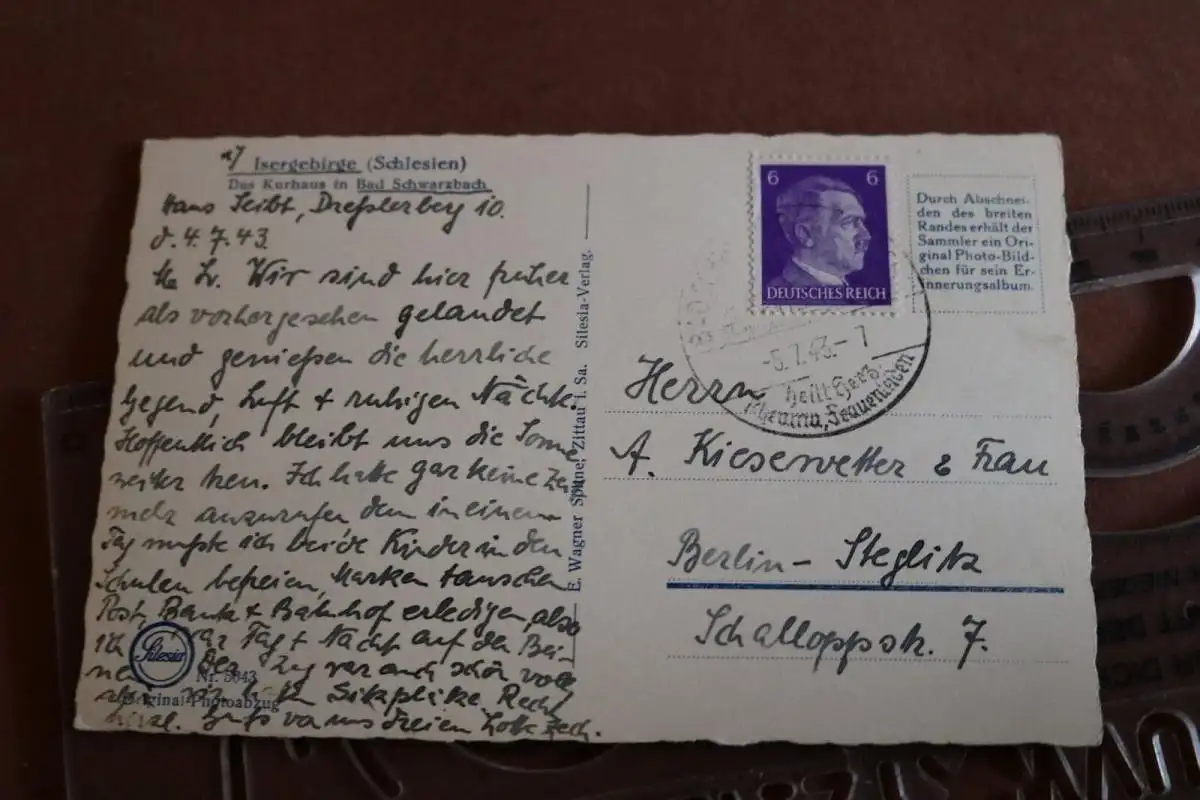 */ Isergebirge (Schlesien)
Das Kurhaus in Bad Schwarzbach
Hans Seibt, Dreßlerberg 10.
d. 4.7.43.
M. Lr. Wir sind hier früher
als vorhergesehen gelandet
und genießen die herrliche
Gegend, Luft + ruhigen Nächte.
Hoffentlich bleibt uns die Sonne
weiter treu. Ich hatte gar keine Zeit
mehr anzurufen denn in einem
Tag mußte ich beide Kinder in den
Schulen befreien, Marken tauschen
Post, Bank + Bahnhof erledigen, also
ich war Tag + Nacht auf den Bei-
nen. Der Zug war auch schön voll
aber wir hatten Sitzplätze. Recht
herzl. Gruß von uns dreien Lotte Zech.
Silesia
Nr. 5043
Original-Photoabzug
E. Wagner Söhne, Zittau i. Sa. Silesia-Verlag.
6 6
DEUTSCHES REICH
-5.7.43.-7
heilt Herz,
Rheuma, Frauenleiden
Durch Abschnei-
den des breiten
Randes erhält der
Sammler ein Ori-
ginal Photo-Bild-
chen für sein Er-
innerungsalbum.
Herrn
A. Kiesewetter & Frau
Berlin-Steglitz
Schalloppstr. 7.